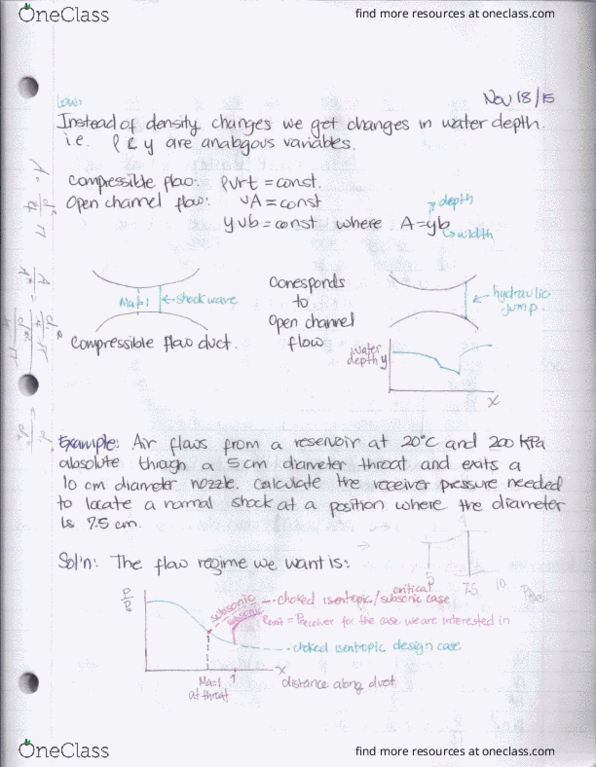 OneClass
find more resources at oneclass.com
Nov 18/15
Instead of density changes we get changes in water depth.
i.e. ρ & y are analogous variables.
Compressible flow:
Open channel flow: vA = const
depth
yvb = const where A = yb
width
Ma=1 ← shock wave
Corresponds
to
Open channel
flow
← hydraulic
jump
Compressible flow duct.
water
depth y
x
Example: Air flows from a reservoir at 20°C and 200 kPa
absolute through a 5cm diameter throat and exits a
10 cm diameter nozzle. Calculate the receiver pressure needed
to locate a normal shock at a position where the diameter
is 7.5 cm.
Sol'n: The flow regime we want is:
5
7.5
10
critical
subsonic
choked isentropic/subsonic case
subsonic
= Preceiver for the case we are interested in
choked isentropic design case
x
Ma=1
at throat
distance along duct
OneClass
find more resources at oneclass.com